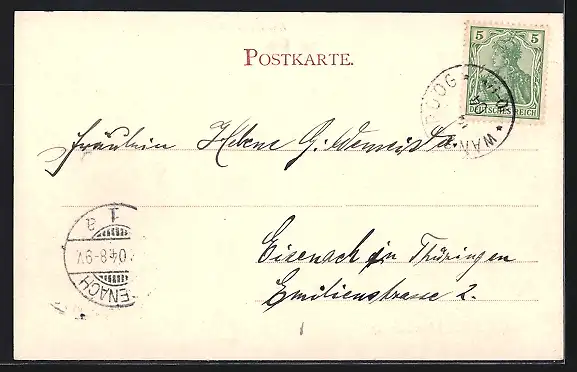 POSTKARTE.
5 5
DEUTSCHES REICH
Fräulein Helene G.
Eisenach in Thüringen
Emilienstrasse 2.
1 a
04.8-9V.
ENACH